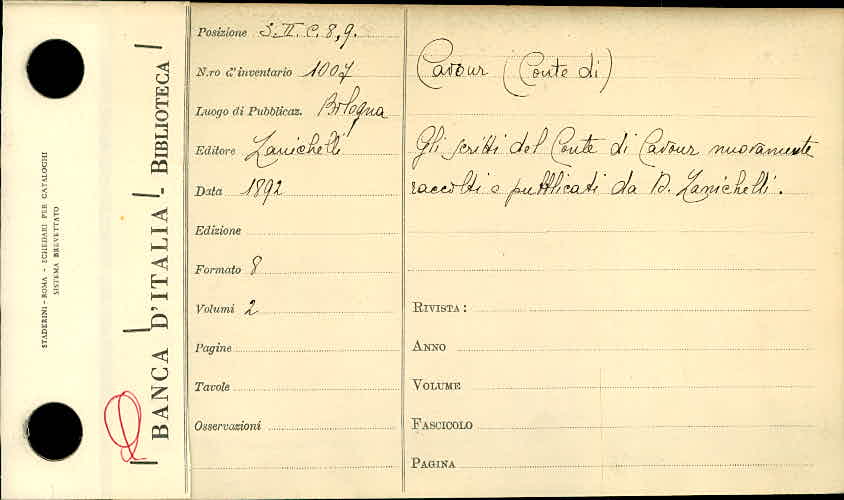 STADERINI - ROMA - SCHEDARI PER CATALOGHI
SISTEMA BREVETTATO
BANCA D'ITALIA - BIBLIOTECA
Posizione S. II. C. 8, 9.
N.ro d'inventario 1007
Luogo di Pubblicaz. Bologna
Editore Zanichelli
Data 1892
Edizione
Formato 8
Volumi 2
Pagine
Tavole
Osservazioni
Cavour (Conte di)
Gli scritti del Conte di Cavour nuovamente
raccolti e pubblicati da D. Zanichelli.
RIVISTA:
ANNO
VOLUME
FASCICOLO
PAGINA